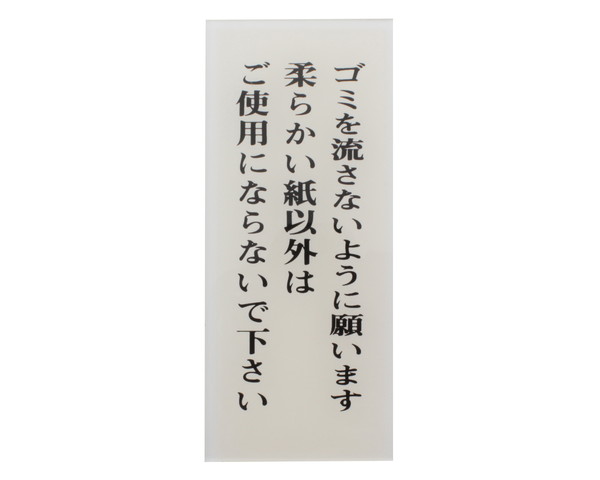 ゴミを流さないように願います
柔らかい紙以外は
ご使用にならないで下さい